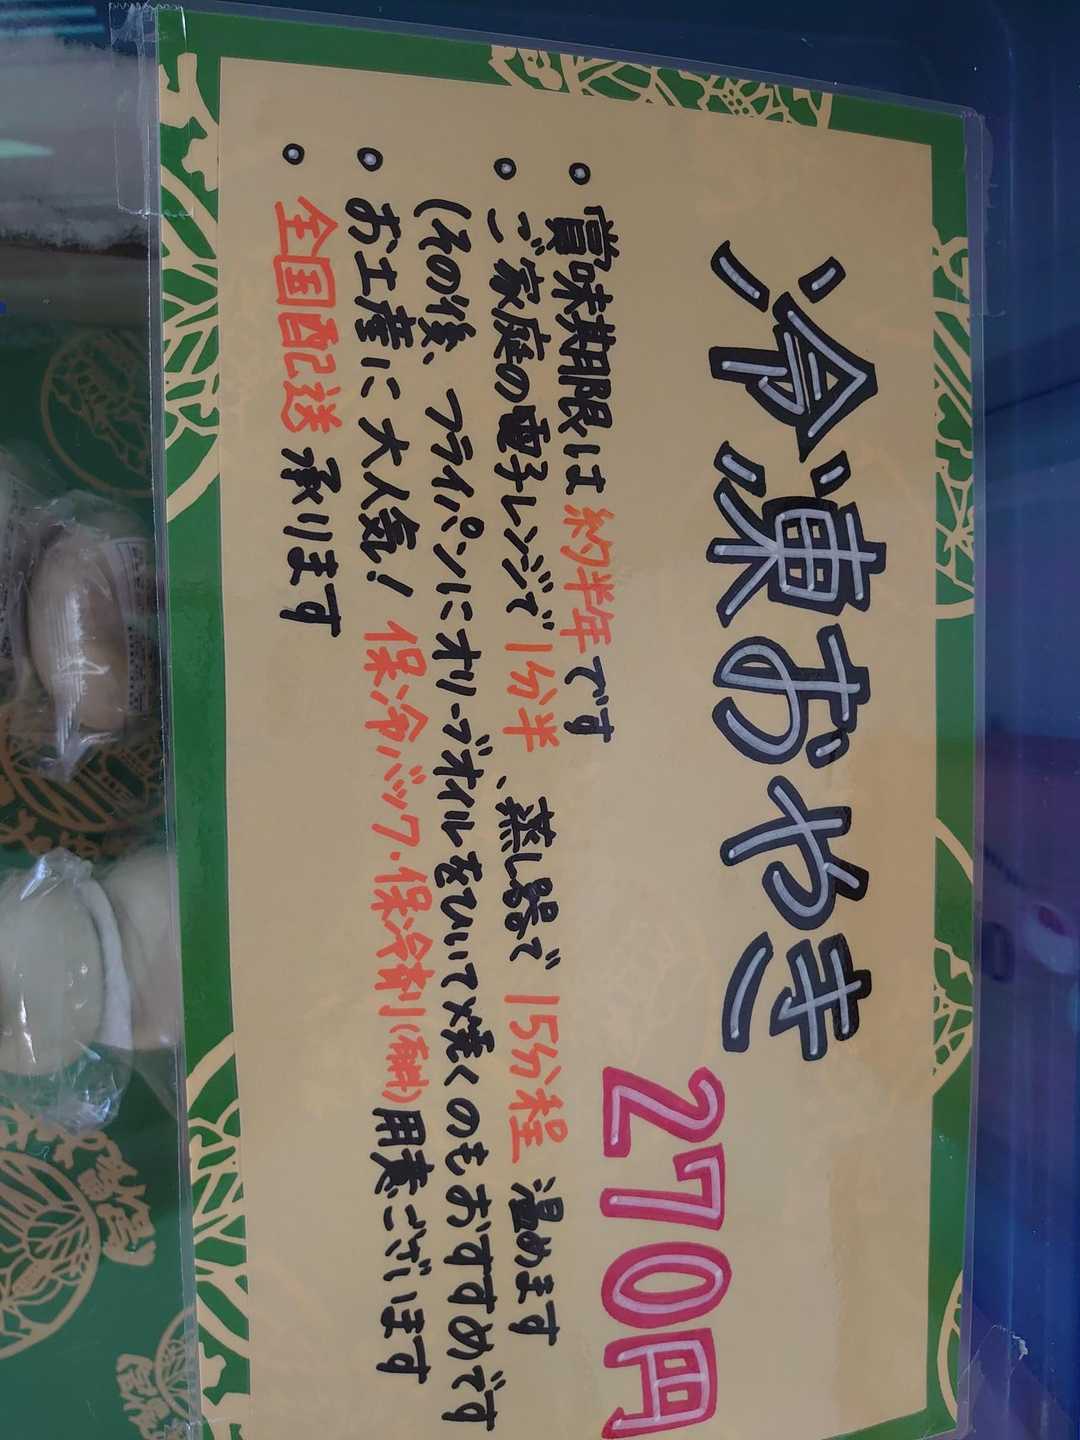 冷凍おやき
270円
• 賞味期限は約半年です
• ご家庭の電子レンジで1分半、蒸し器で15分程温めます
(その後、フライパンにオリーブオイルをひいて焼くのもおすすめです
• お土産に大人気！保冷バック・保冷剤(無料)用意ございます
• 全国配送承ります